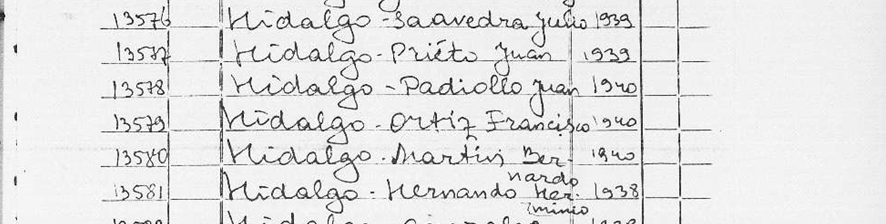 13576 Hidalgo - Saavedra Julio 1939
13577 Hidalgo - Priéto Juan 1939
13578 Hidalgo - Padiollo Juan 1940
13579 Hidalgo - Ortiz Francisco 1940
13580 Hidalgo - Martin Ber- 1940
nardo
13581 Hidalgo - Hernando Her- 1938
minio